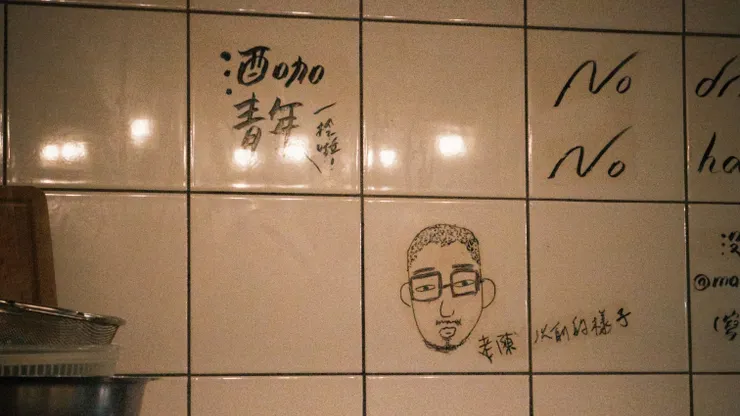 酒咖
青年
一拴啦!
No dr
No ha
老陳 以前的樣子
沒
@ma